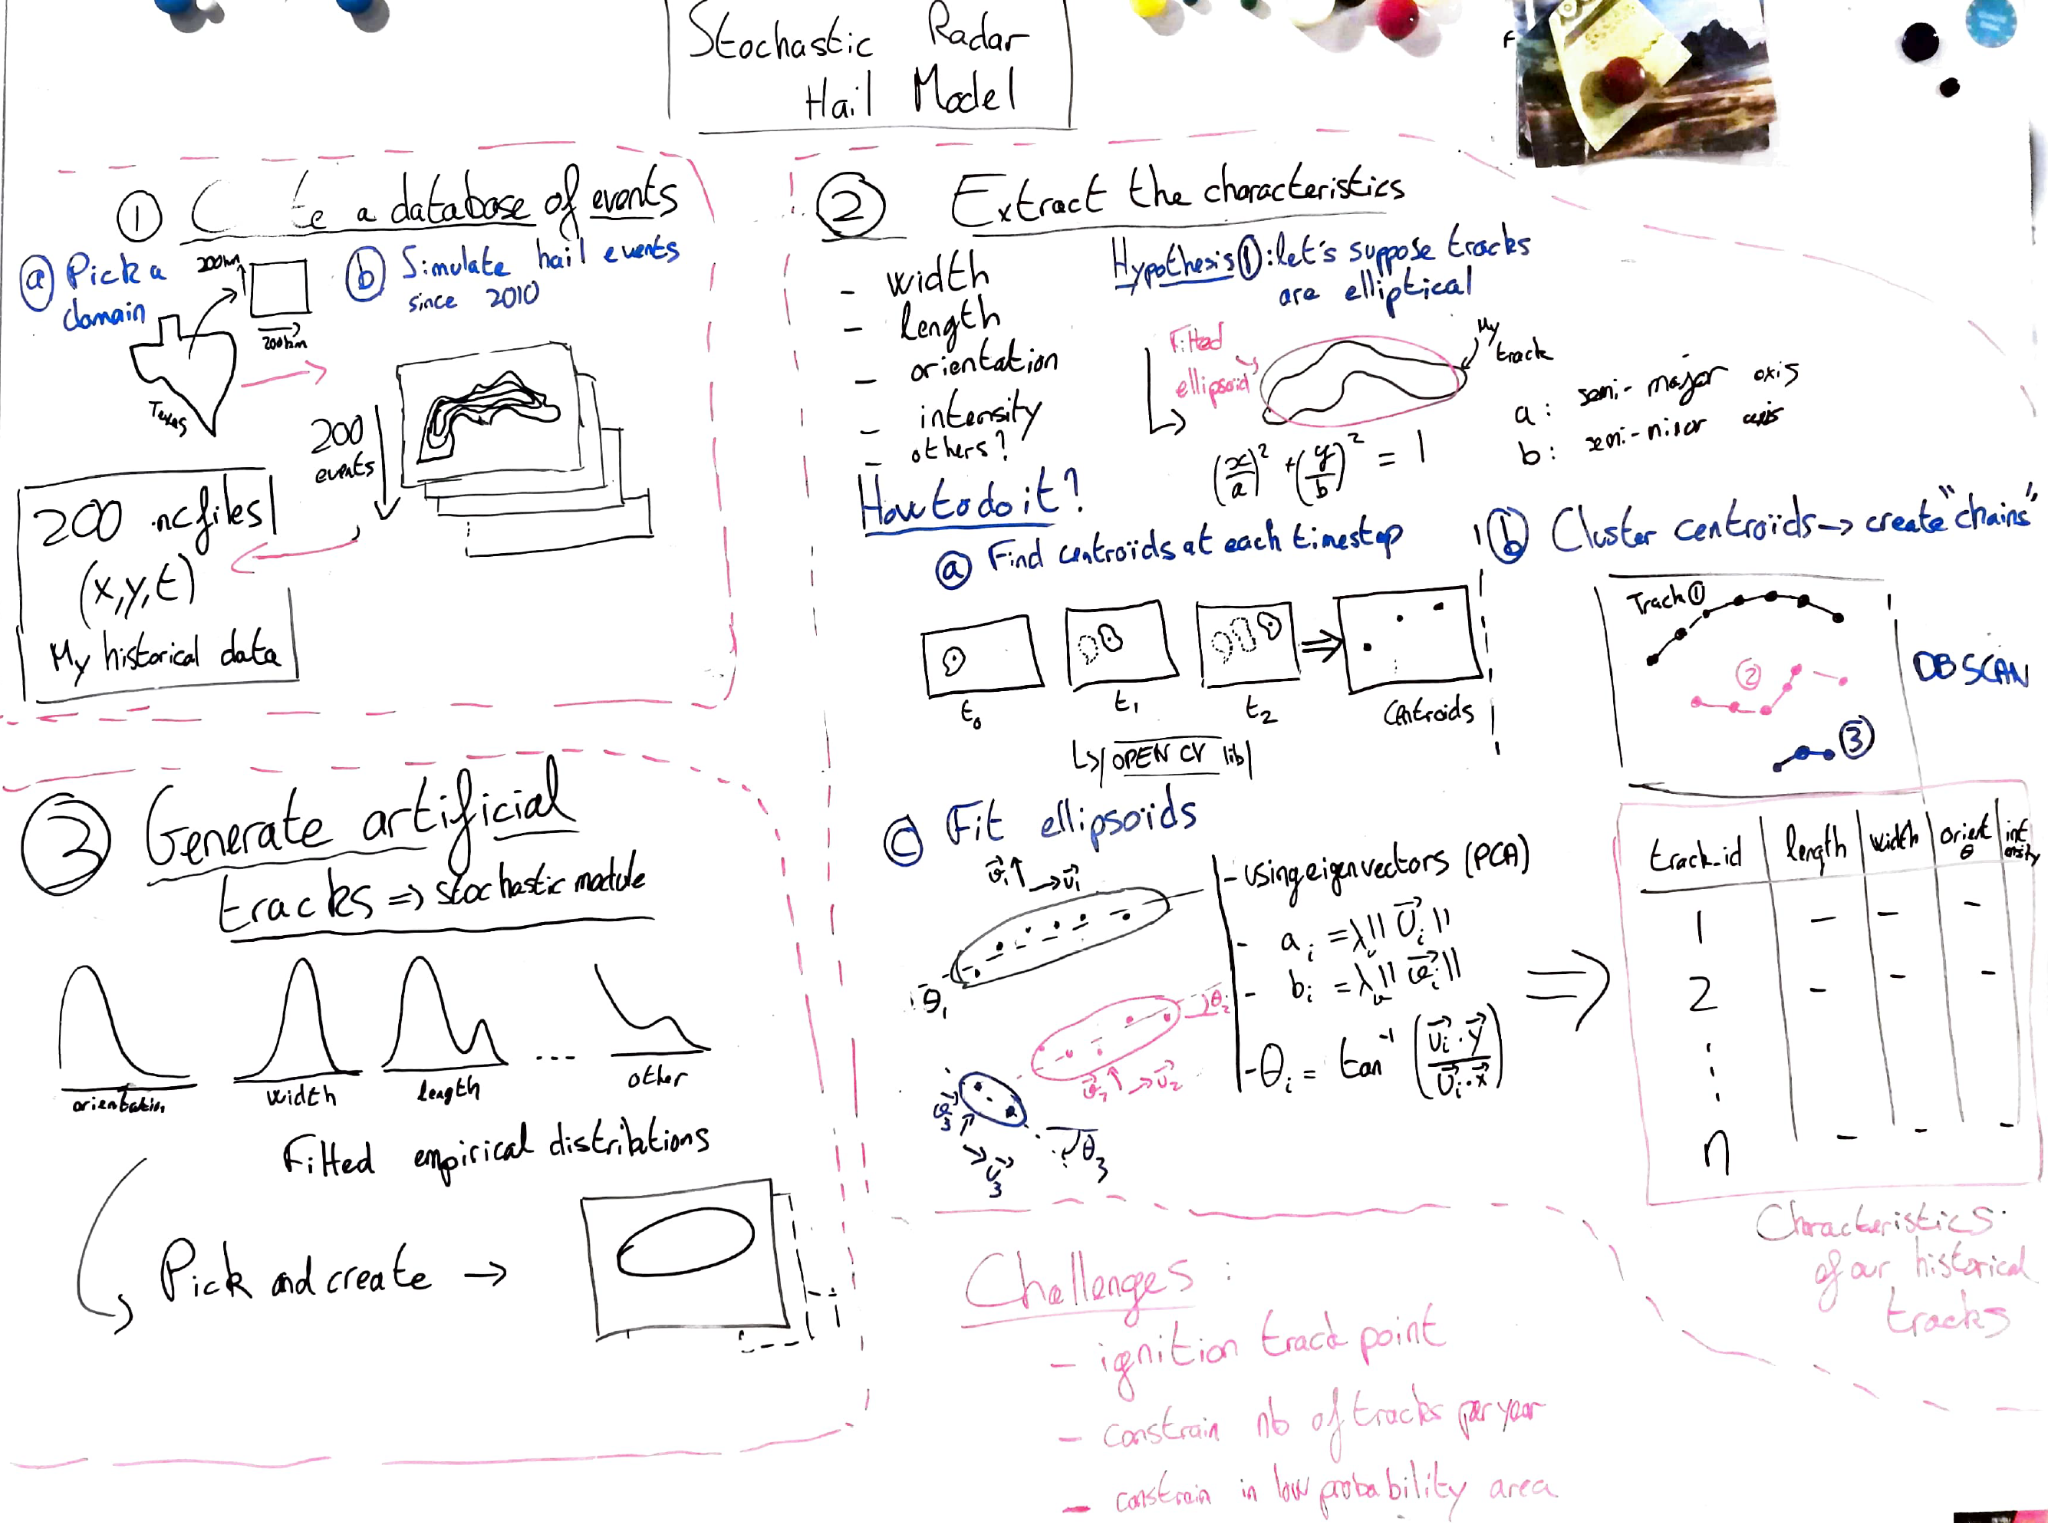 Stochastic Radar
Hail Model
① a database of events
ⓐ Pick a
domain
200km
200km
Texas
ⓑ Simulate hail events
since 2010
200
events
200 .nc files
(x,y,t)
My historical data
② Extract the characteristics
- width
- length
- orientation
- intensity
- others?
Hypothesis ①: let's suppose tracks
are elliptical
Fitted
ellipsoid
My
track
(x/a)² + (y/b)² = 1
a: semi-major axis
b: semi-minor axis
How to do it?
ⓐ Find centroïds at each timestep
t₀
t₁
t₂
Centroids
↳ OPEN CV lib
ⓑ Cluster centroïds → create "chains"
Track ①
②
③
DBSCAN
ⓒ Fit ellipsoïds
θ₁
θ₂
θ₃
- using eigenvectors (PCA)
- θᵢ = tan⁻¹
track_id length width orient θ intensity
1 - - -
2 - - -
n - - -
Characteristics
of our historical
tracks
③ Generate artificial
tracks => stochastic module
orientation width length ... other
Fitted empirical distributions
Pick and create →
Challenges:
- ignition track point
- constrain nb of tracks per year
- constrain in low probability area